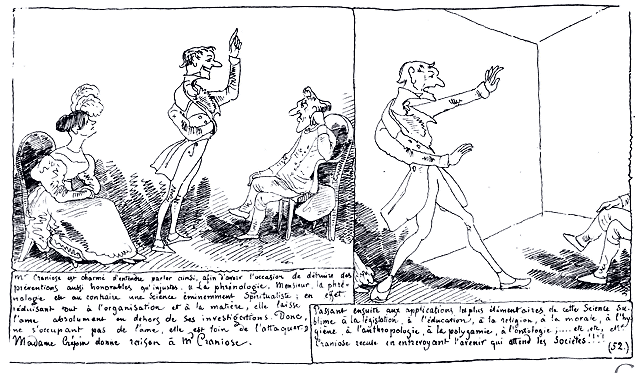 Mr Craniose est charmé d'entendre parler ainsi, afin d'avoir l'occasion de détruire des
préventions aussi honorables qu'injustes. « La phrénologie, Monsieur, la phré-
nologie est au contraire une Science éminemment Spiritualiste ; en effet,
réduisant tout à l'organisation et à la matière, elle laisse
l'ame absolument en dehors de ses investigations. Donc,
ne s'occupant pas de l'ame, elle est loin de l'attaquer »
Madame Crépin donne raison à Mr Craniose.
Passant ensuite aux applications les plus élémentaires de cette Science Su-
blime à la législation, à l'éducation, à la religion, à la morale, à l'hy
giène, à l'anthropologie, à la polygamie, à l'ontologie,.... etc, etc, Mr
Craniose recule en entrevoyant l'avenir qui attend les Sociétés!!!!
(52.)